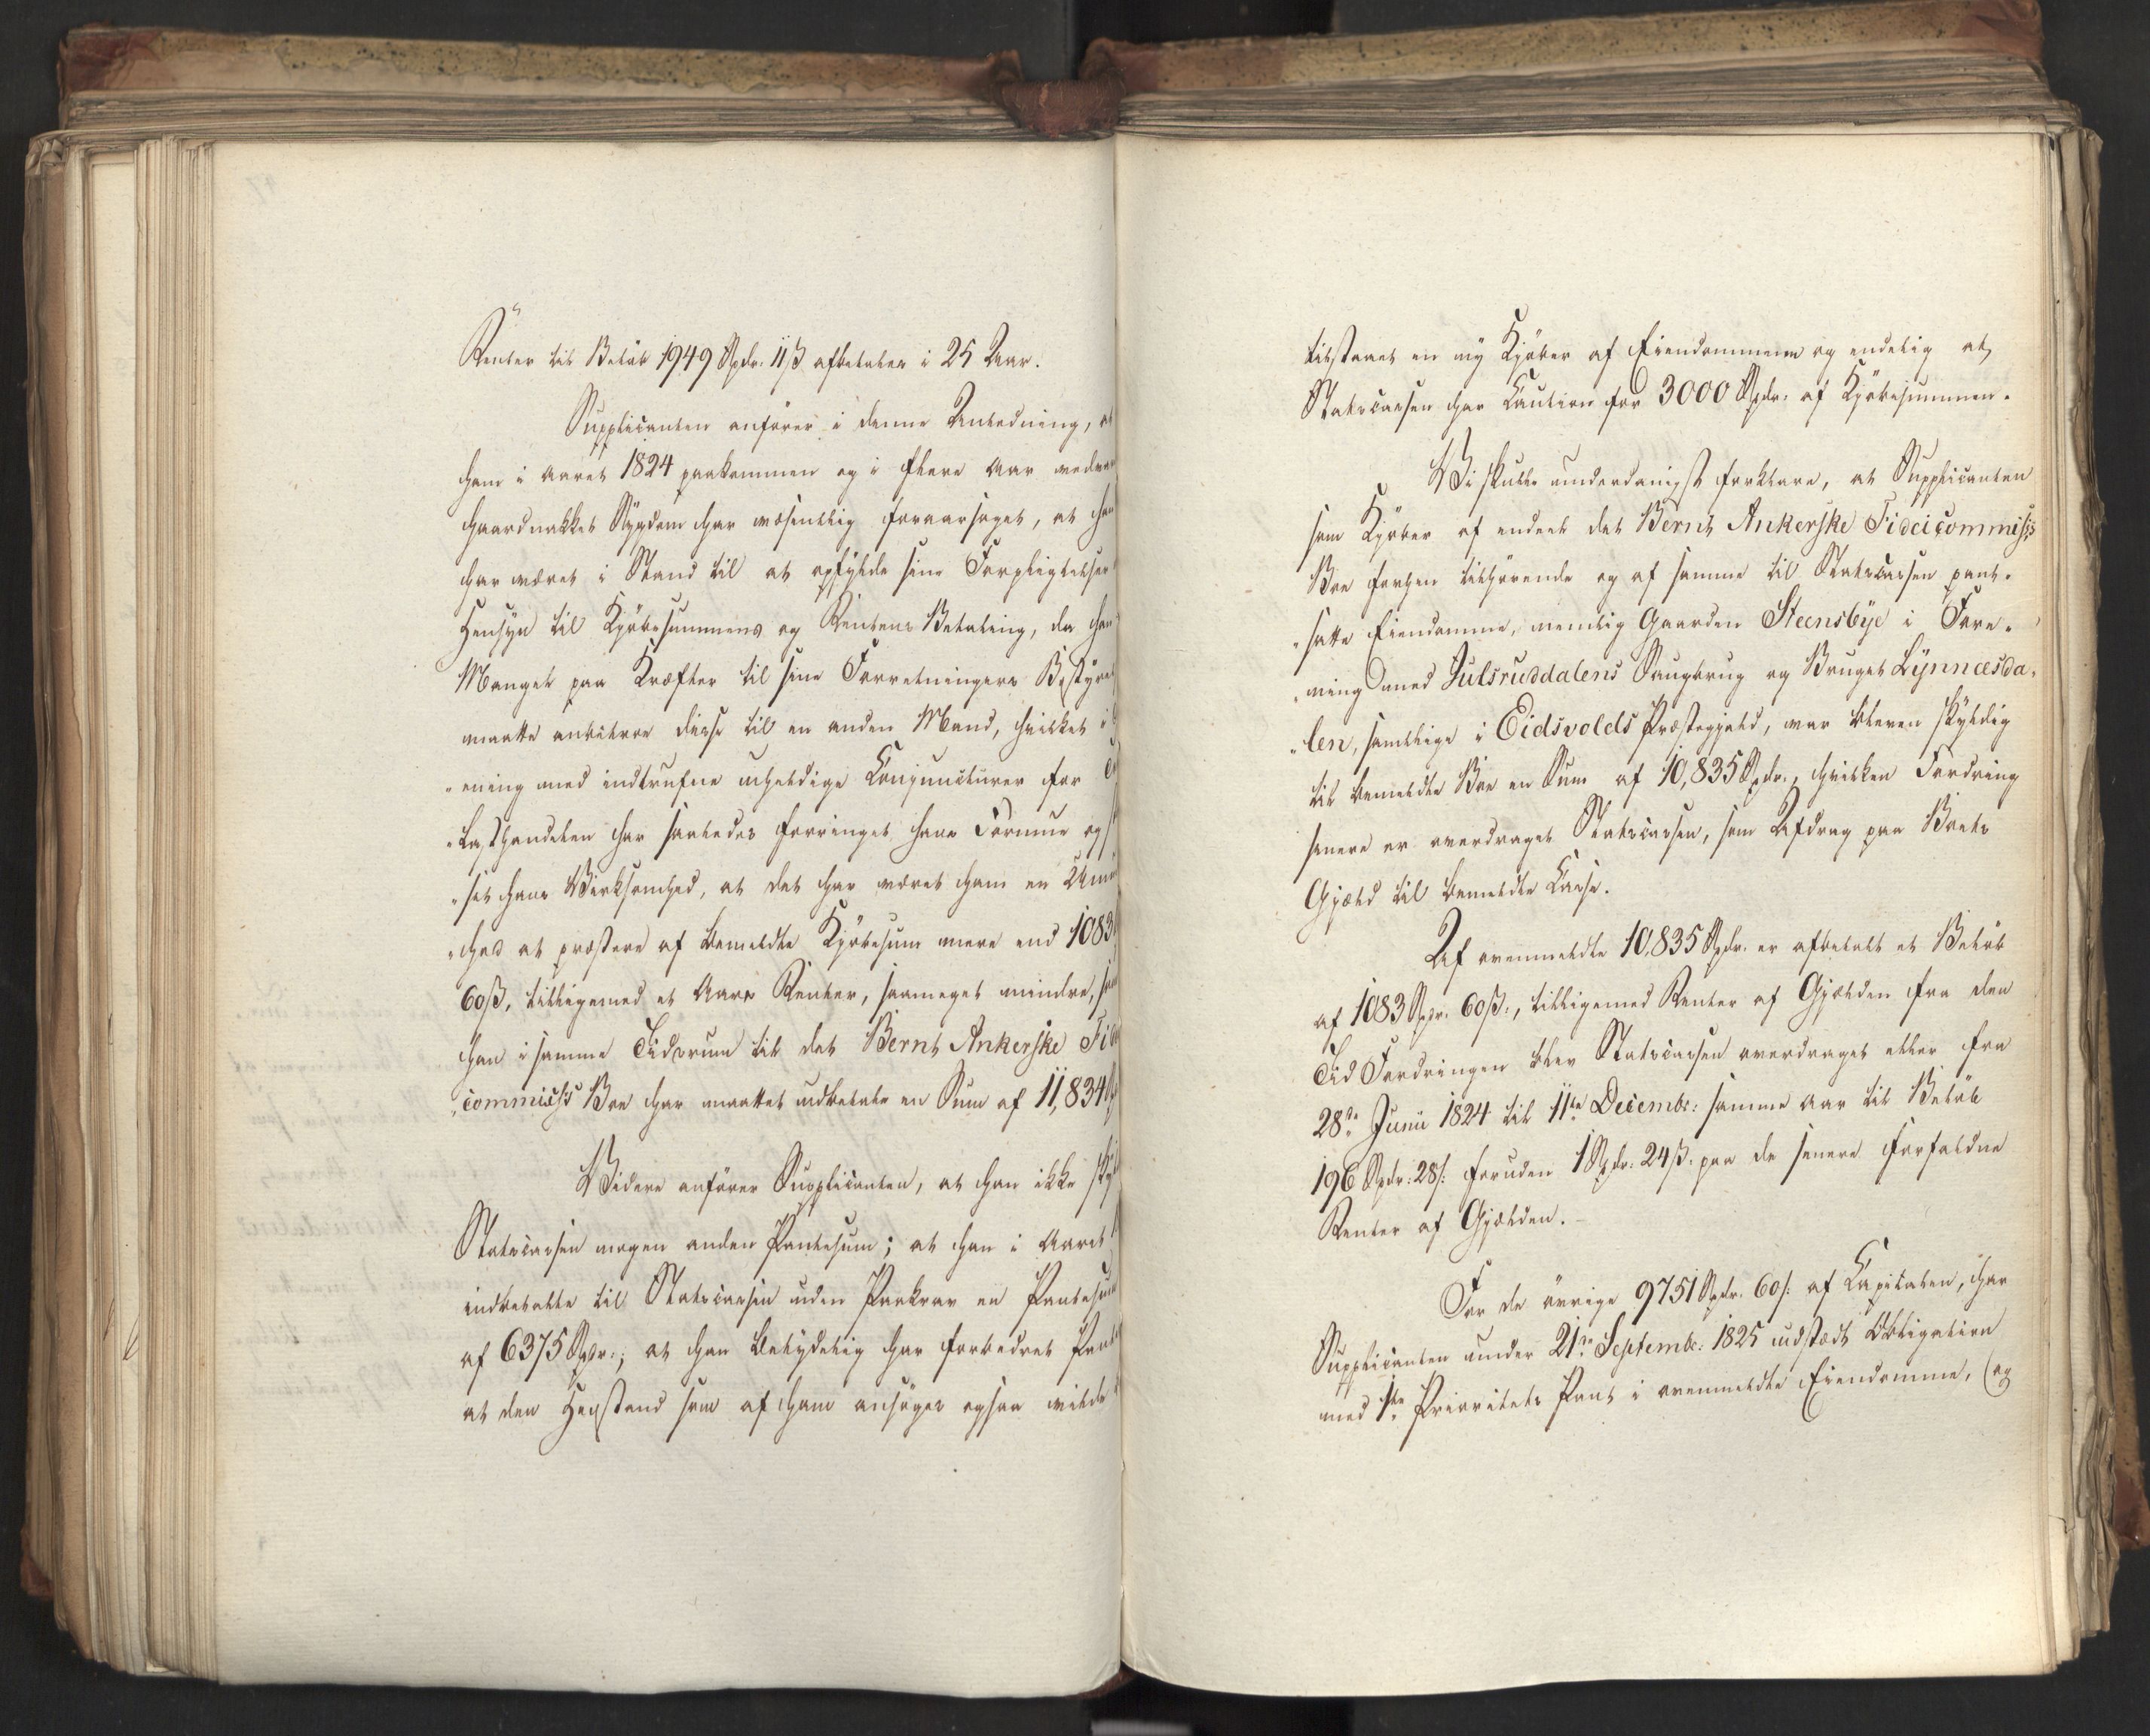 Renter til Beløb 1949 Spdr. 11ß afbetales i 25 Aar.
Supplicanten anfører i denne Anledning, at
ham i Aaret 1824 paakommen og i flere Aar
haardnakket Sygdom har væsentlig foraarsaget, at
har været i Stand til at opfylde sine Forpligtelser
Hensyn til Kjøbesummens og Rentens Betaling, da han
Mangel paa Kræfter til sine Forretningers Bestyrel
maatte anbetroe disse til en anden Mand, hvilket i
„ening med indtrufne uheldige Conjuncturer for
„Lasthandelen har saaledes forringet hans Formue og
„set hans Virksomhed, at det har været ham en Umu
„hed at præstere af bemeldte Kjøbesum mere end 1083
60ß, tilligemed et Aars Renter, saameget mindre, som
han i samme Tidsrum til det Bernt Ankerske Fid
„commiss's Boe har maattet udbetale en Sum af 11,834
Videre anfører Supplicanten, at han ikke
Statscassen nogen anden Pantesum; at han i Aaret
indbetalte til Statscassen uden Paakrav en Pantesum
af 6375 Spdr.; at han betydelig har forbedret Pant
at den Henstand som af ham ansøges ogsaa vilde
tilstaaet en ny Kjøber af Eiendommene og endelig at
Statscassen har Caution for 3000 Spdr. af Kjøbesummen.
Vi skulle underdanigst forklare, at Supplicanten
som Kjøber af endeel det Bernt Ankerske Fideicommiss's
Boe forhen tilhørende og af samme til Statscassen pant-
„satte Eiendomme, nemlig Gaarden Steensbye i Fore-
„ning med Julsruddalens Saugbrug og Bruget Lynnæsda-
„len, samtlige i Eidsvolds Præstegjeld, var bleven skyldig
til bemeldte Boe en Sum af 10,835 Spdr., hvilken Fordring
senere er overdraget Statscassen, som Afdrag paa Boets
Gjæld til bemeldte Casse.
Af ovenmeldte 10,835 Spdr. er afbetalt et Beløb
af 1083 Spdr. 60ß:, tilligemed Renter af Gjælden fra den
Tid Fordringen blev Statscassen overdraget eller fra
28de Junii 1824 til 11te Decembr: samme Aar til Beløb
196 Spdr: 28ß: foruden 1 Spdr: 24ß. paa de senere forfaldne
Renter af Gjælden. –
For de øvrige 9751 Spdr. 60ß: af Capitalen, har
Supplicanten under 21de Septembr: 1825 udstædt Obligation
med 1ste Prioritets Pant i ovenmeldte Eiendomme, (og